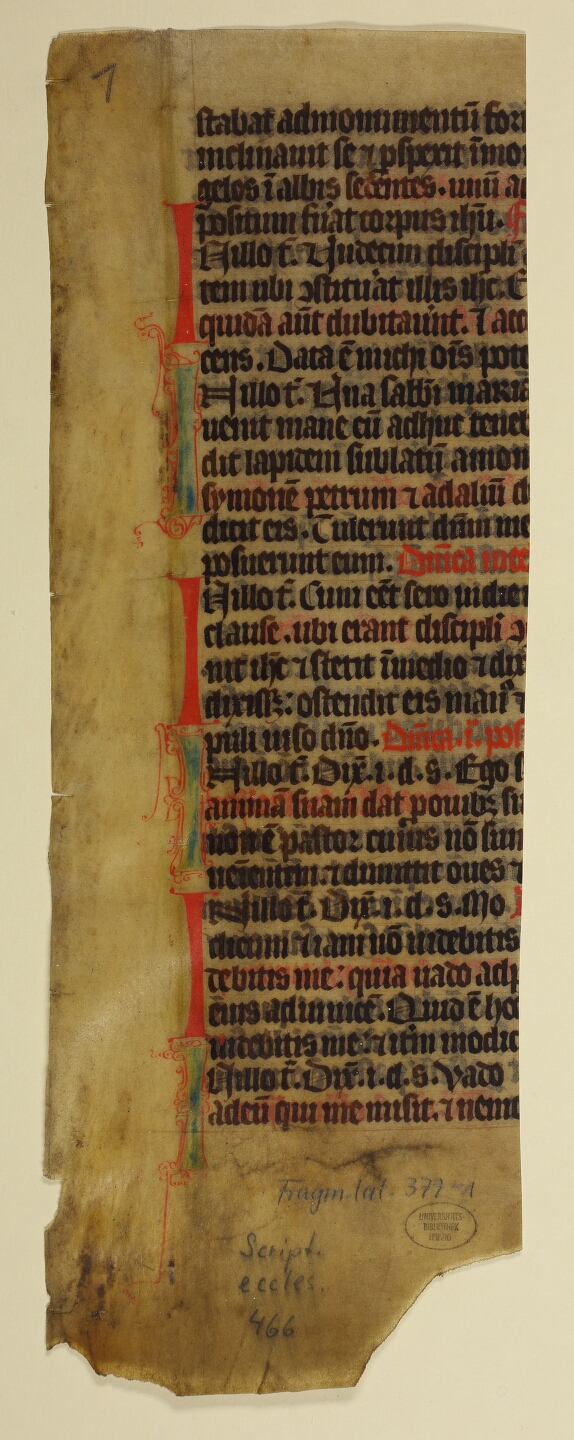 1
stabat ad monumentū for
inclinauit se ⁊ ꝓspexit ī mo
gelos ī albis sedentes. unū a
positum fuat corpus ihu.
Nillo t̄. Undecim discipli
tem ubi ↄstituat illis ihc. E
quidā aūt dubitauunt. ⁊ acc
cens. Data ē michi oīs pote
Nillo t̄. Una sabbi maria
uenit mane cū adhuc teneb
dit lapidem sublatū a mon
symonē petrum ⁊ ad aliū d
dicit eis. Tulerunt dnm me
posuerunt eum. Dnica
Nillo t̄. Cum eēt sero
clause. ubi erant discipli ↄ
nit ihc ⁊ stetit ī medio ⁊ dix
dixisꝫ: ostendit eis manꝰ ⁊
puli uiso dno. Dnica. i. pos
Nillo t̄. Dix̄. i. d. s. Ego
animā suam dat pouibꝫ su
non ē pastor cuius nō sun
uēientem. ⁊ dimittit oues ⁊
Nillo t̄. Dix̄. i. d. s. Mo
dicum ⁊ iam nō uidebitis
debitis me: quia uado ad p
eius adinuicē. Quid ē hoc
uidebitis me: ⁊ itm modic
Nillo t̄. Dix̄. i. d. s. Vado
ad eū qui me misit. ⁊ nemo
Fragm. lat. 377-1
UNIVERSITÄTS-
BIBLIOTHEK
LEIPZIG
Script.
eccles.
466